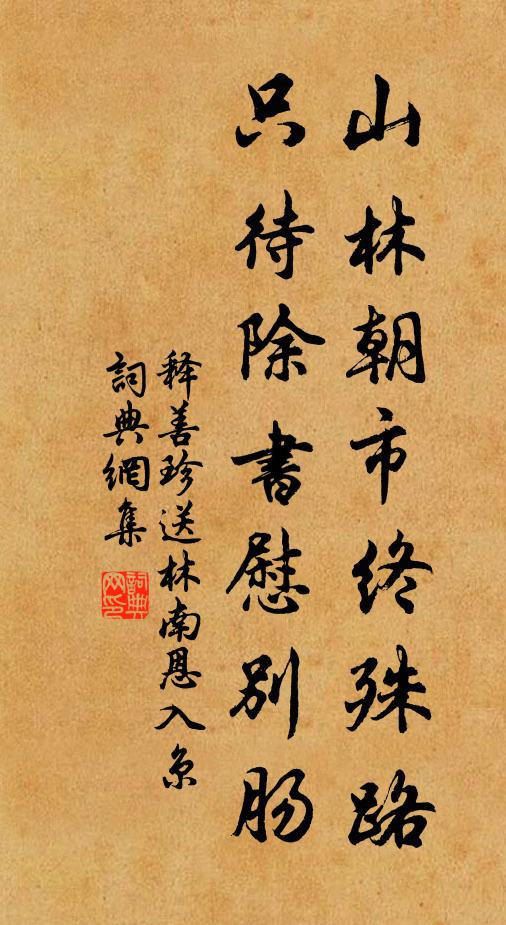 山林朝市终殊路
只待除書慰別肠
释善珍送林南恩入京
詞典網集
詞典网印